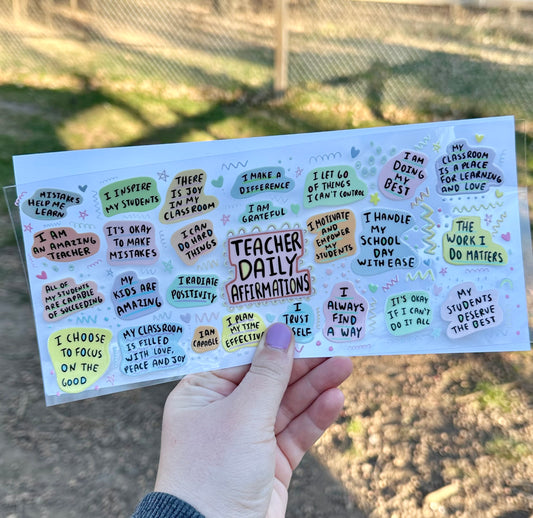 MISTAKES
HELP ME
LEARN
I INSPIRE
MY STUDENTS
THERE
IS JOY
IN MY
CLASSROOM
I MAKE A
DIFFERENCE
I LET GO
OF THINGS
I CAN'T CONTROL
I AM
DOING
MY
BEST
MY
CLASSROOM
IS A PLACE
FOR LEARNING
AND LOVE
I AM
GRATEFUL
I AM
AN AMAZING
TEACHER
IT'S OKAY
TO MAKE
MISTAKES
I CAN
DO HARD
THINGS
TEACHER
DAILY
AFFIRMATIONS
I MOTIVATE
AND
EMPOWER
MY
STUDENTS
I HANDLE
MY
SCHOOL
DAY
WITH EASE
THE
WORK I
DO MATTERS
ALL OF
MY STUDENTS
ARE CAPABLE
OF SUCCEEDING
MY
KIDS ARE
AMAZING
I RADIATE
POSITIVITY
I CHOOSE
TO FOCUS
ON THE
GOOD
MY CLASSROOM
IS FILLED
WITH LOVE,
PEACE AND JOY
I AM
CAPABLE
I PLAN
MY TIME
EFFECTIVELY
I
TRUST
MYSELF
I
ALWAYS
FIND
A WAY
IT'S OKAY
IF I CAN'T
DO IT ALL
MY
STUDENTS
DESERVE
THE BEST